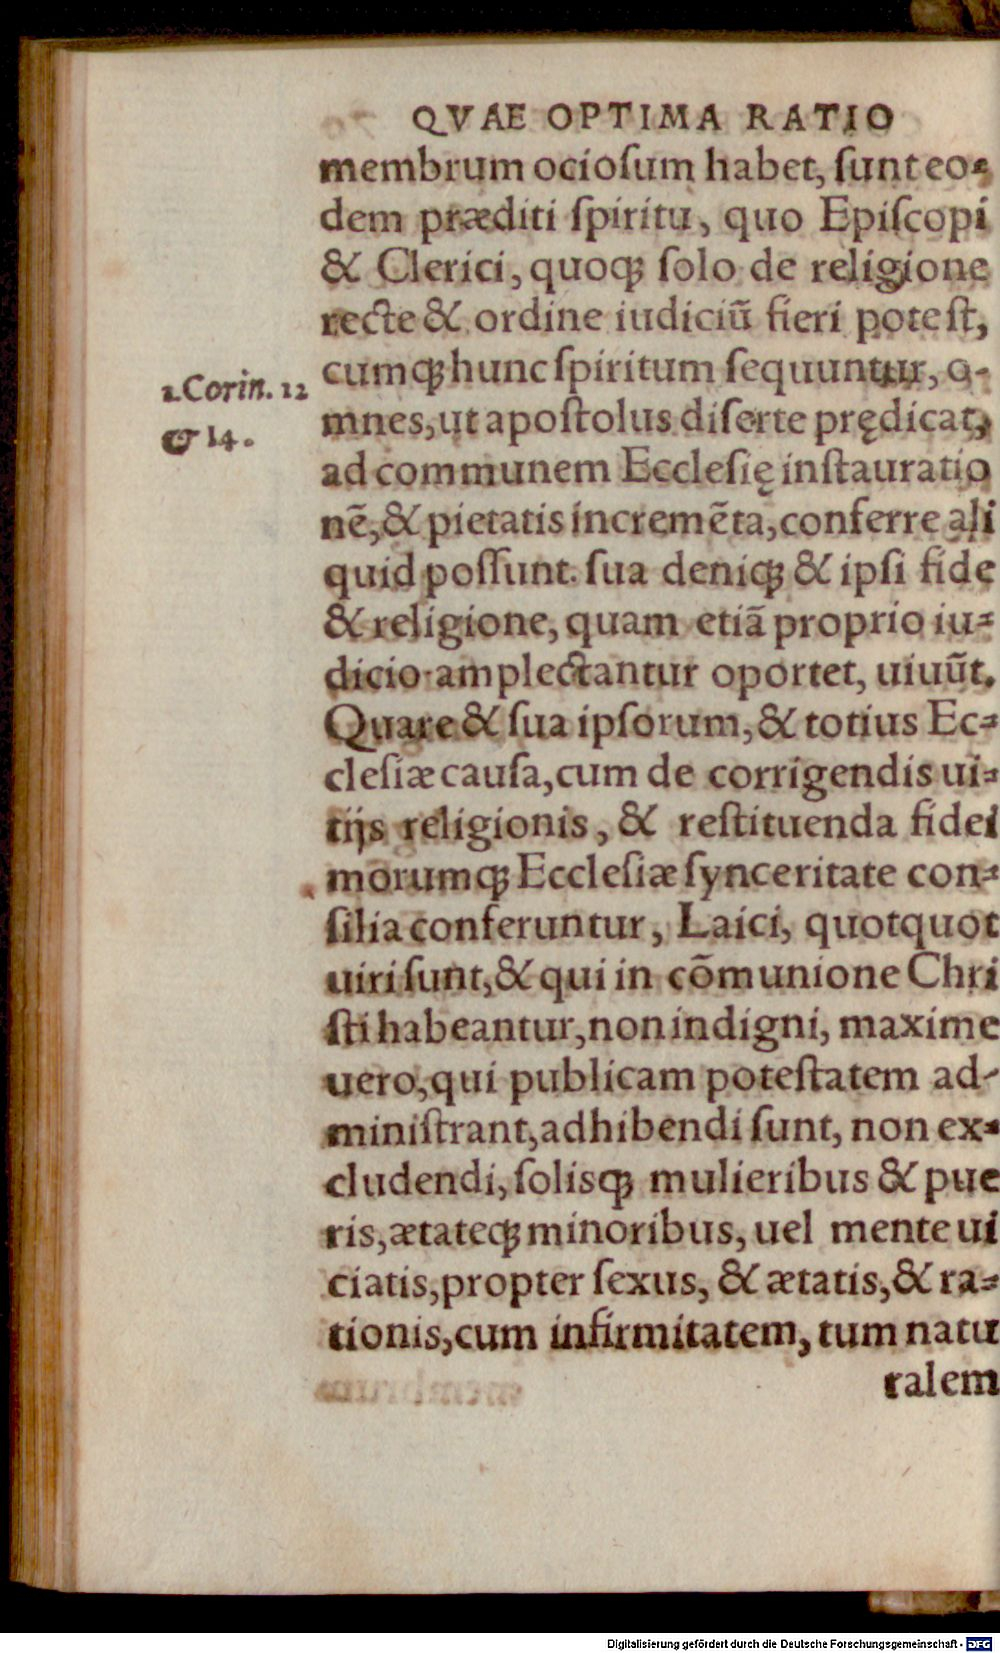 QVAE OPTIMA RATIO
membrum ocioſum habet, ſunt eo⸗
dem præditi ſpiritu, quo Epiſcopi
& Clerici, quoqꝫ ſolo de religione
recte & ordine iudiciũ fieri poteſt,
cumqꝫ hunc ſpiritum ſequuntur, o-
1. Corin. 12
mnes, ut apoſtolus diſerte prędicat,
& 14.
ad communem Eccleſię inſtauratio
nẽ, & pietatis incremẽta, conferre ali
quid poſſunt. ſua deniqꝫ & ipſi fide
& religione, quam etiã proprio iu⸗
dicio amplectantur oportet, uiuũt.
Quare & ſua ipſorum, & totius Ec⸗
cleſiæ cauſa, cum de corrigendis ui⸗
tijs religionis, & reſtituenda fidei
morumqꝫ Eccleſiæ ſynceritate con⸗
ſilia conferuntur, Laici, quotquot
uiri ſunt, & qui in cõmunione Chri
ſti habeantur, non indigni, maxime
uero, qui publicam poteſtatem ad-
miniſtrant, adhibendi ſunt, non ex⸗
cludendi, ſolisqꝫ mulieribus & pue
ris, ætateqꝫ minoribus, uel mente ui
ciatis, propter ſexus, & ætatis, & ra⸗
tionis, cum infirmitatem, tum natu
ralem
Digitalisierung gefördert durch die Deutsche Forschungsgemeinschaft - DFG